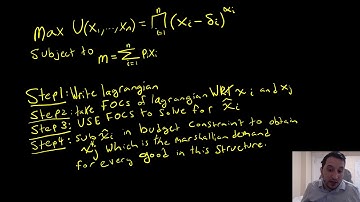 max U(x₁,...,xₙ) = ∏ⁿᵢ₌₁ (xᵢ - δᵢ)^αᵢ
Subject to m = ∑ⁿᵢ₌₁ Pᵢxᵢ
Step1: Write lagrangian
Step2: take FOCs of lagrangian WRT xᵢ and xⱼ
Step3: USE FOCs to solve for x̃ᵢ
Step4: sub x̃ᵢ in budget constraint to obtain
xⱼ* which is the marshallian demand
for every good in this structure.